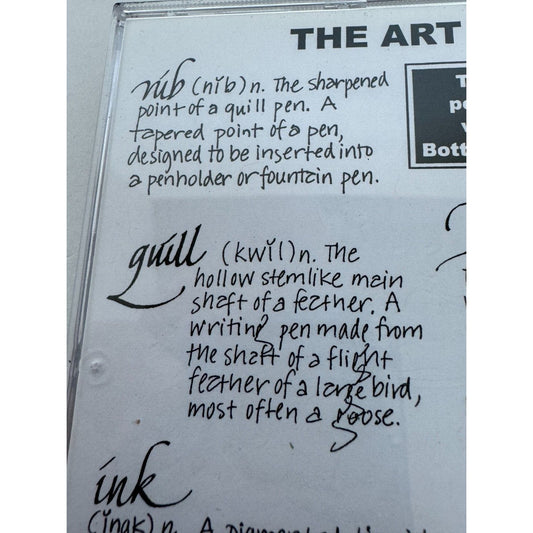 THE ART
nib (nĭb) n. The sharpened
point of a quill pen. A
tapered point of a pen,
designed to be inserted into
a penholder or fountain pen.
Bott
quill (kwĭl) n. The
hollow stemlike main
shaft of a feather. A
writing pen made from
the shaft of a flight
feather of a large bird,
most often a goose.
ink
(ĭngk) n. A